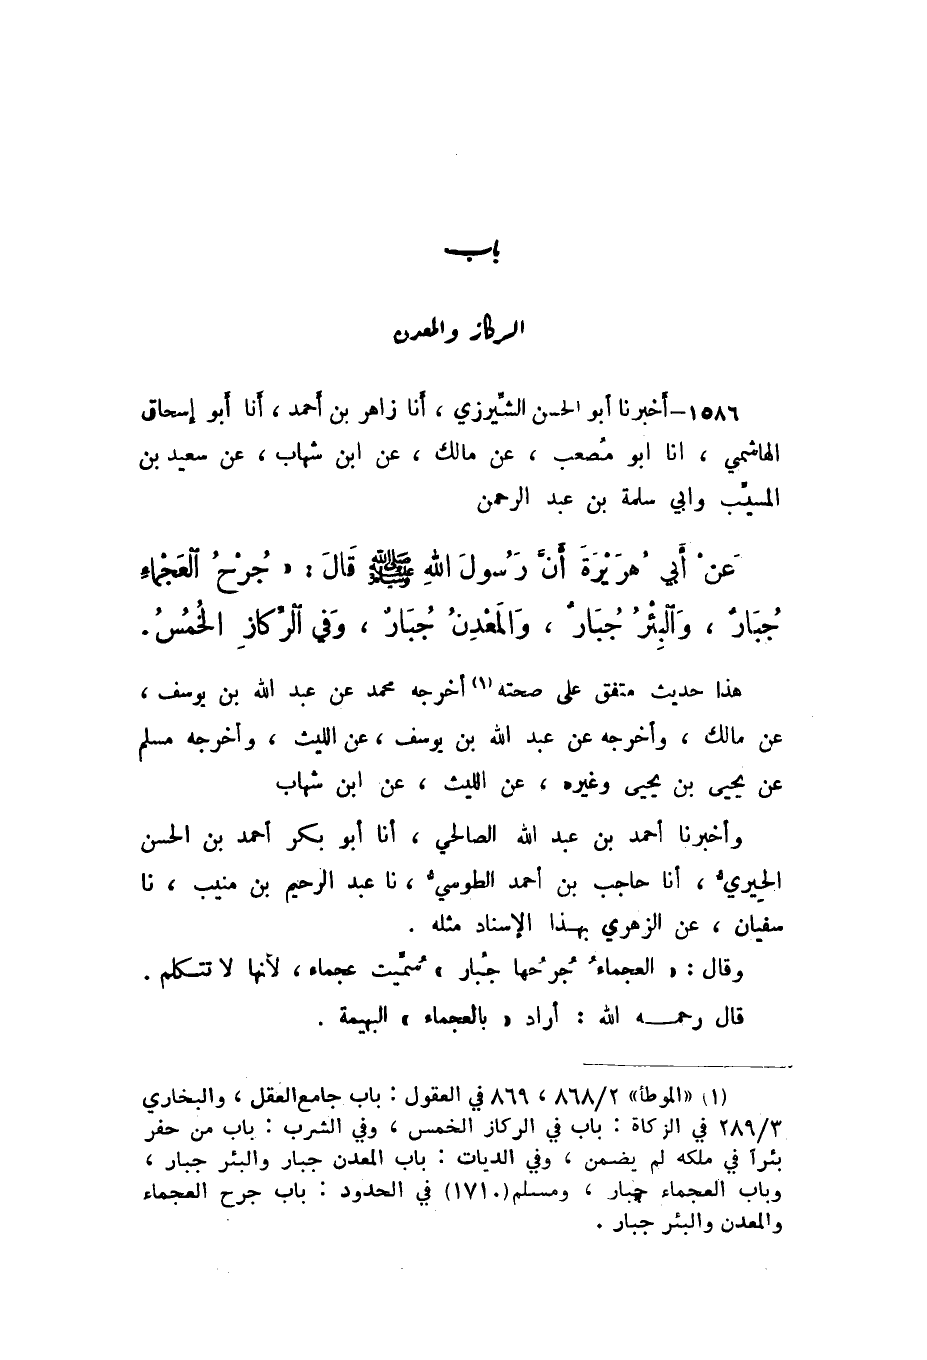 باب
الركاز والمعدن
١٥٨٦ – أخبرنا أبو الحسن الشِّيرزي ، أنا زاهر بن أحمد ، أنا أبو إسحاق
الهاشمي ، انا ابو مُصعب ، عن مالك ، عن ابن شهاب ، عن سعيد بن
المسيَّب وابي سلمة بن عبد الرحمن
عَنْ أَبي هُرَيْرَةَ أَنَّ رَسُولَ اللهِ ﷺ قَالَ : « جُرْحُ الْعَجْمَاءِ
جُبَارٌ ، وَالْبِئْرُ جُبَارٌ ، وَالْمَعْدِنُ جُبَارٌ ، وَفي الرِّكَازِ الْخُمُسُ .
هذا حديث متفق على صحته (١) أخرجه محمد عن عبد الله بن يوسف ،
عن مالك ، وأخرجه عن عبد الله بن يوسف ، عن الليث ، وأخرجه مسلم
عن يحيى بن يحيى وغيره ، عن الليث ، عن ابن شهاب
وأخبرنا أحمد بن عبد الله الصالحي ، أنا أبو بكر أحمد بن الحسن
الحِيريُّ ، أنا حاجب بن أحمد الطوسيُّ ، نا عبد الرحيم بن منيب ، نا
سفيان ، عن الزهري بهذا الإسناد مثله .
وقال : « العجماءُ جُرحُها جُبار » سُمِّيت عجماء ، لأنها لا تتكلم .
قال رحمه الله : أراد « بالعجماء » البهيمة .
(١) «الموطأ» ٨٦٨/٢ ، ٨٦٩ في العقول : باب جامع العقل ، والبخاري
٢٨٩/٣ في الزكاة : باب في الركاز الخمس ، وفي الشرب : باب من حفر
بئراً في ملكه لم يضمن ، وفي الديات : باب المعدن جبار والبئر جبار ،
وباب العجماء جبار ، ومسلم (١٧١٠) في الحدود : باب جرح العجماء
والمعدن والبئر جبار .